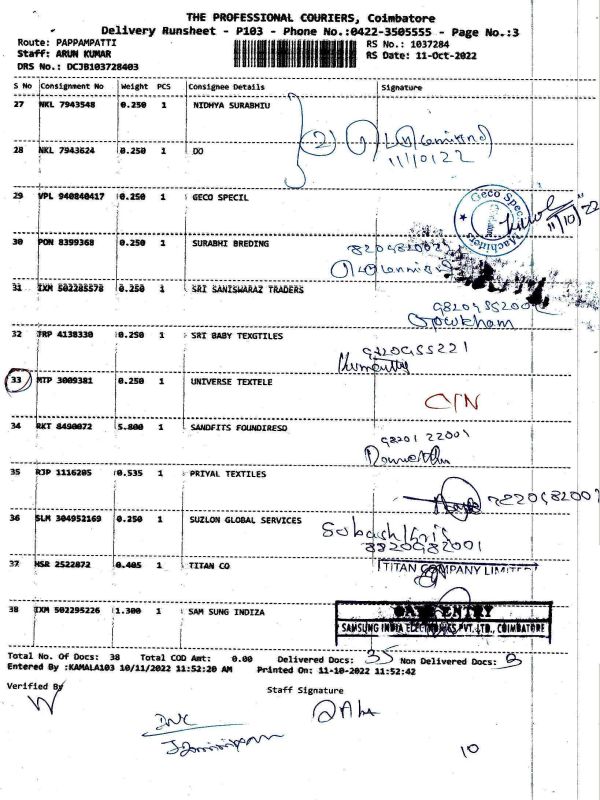 THE PROFESSIONAL COURIERS, Coimbatore
Delivery Runsheet - P103 - Phone No.:0422-3505555 - Page No.:3
Route: PAPPAMPATTI
RS No.: 1037284
Staff: ARUN KUMAR
RS Date: 11-Oct-2022
DRS No.: DCJB103728403
S No Consignment No Weight PCS Consignee Details Signature
27 NKL 7943548 0.250 1 NIDHYA SURABHIU
2
11/10/22
28 NKL 7943624 0.250 1 DO
29 VPL 940840417 0.250 1 GECO SPECIL
Geco Special Machines
11/10/22
30 PON 8399368 0.250 1 SURABHI BREDING
31 IXM 502285578 0.250 1 SRI SANISWARAZ TRADERS
32 JRP 4138330 0.250 1 SRI BABY TEXGTILES
33 MTP 3009381 0.250 1 UNIVERSE TEXTELE
C/N
34 RKT 8490072 5.800 1 SANDFITS FOUNDIRESD
35 RJP 1116205 0.535 1 PRIYAL TEXTILES
36 SLM 304952169 0.250 1 SUZLON GLOBAL SERVICES
8820982001
37 HSR 2522872 0.405 1 TITAN CO
TITAN COMPANY LIMITED
38 IXM 502295226 1.300 1 SAM SUNG INDIZA
DATE ENTRY
SAMSUNG INDIA ELECTRONICS PVT. LTD., COIMBATORE
Total No. Of Docs: 38 Total COD Amt: 0.00 Delivered Docs: 35 Non Delivered Docs: 3
Entered By :KAMALA103 10/11/2022 11:52:20 AM Printed On: 11-10-2022 11:52:42
Verified By
Staff Signature
10